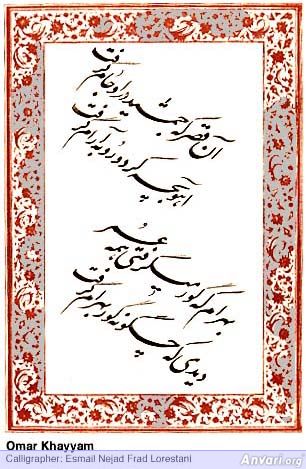 آن قصر که جمشید در او جام گرفت
آهو بچه کرد و روبه آرام گرفت
بهرام که گور میگرفتی همه عمر
دیدی که چگونه گور بهرام گرفت
Omar Khayyam
Calligrapher: Esmail Nejad Frad Lorestani
Anvari.org